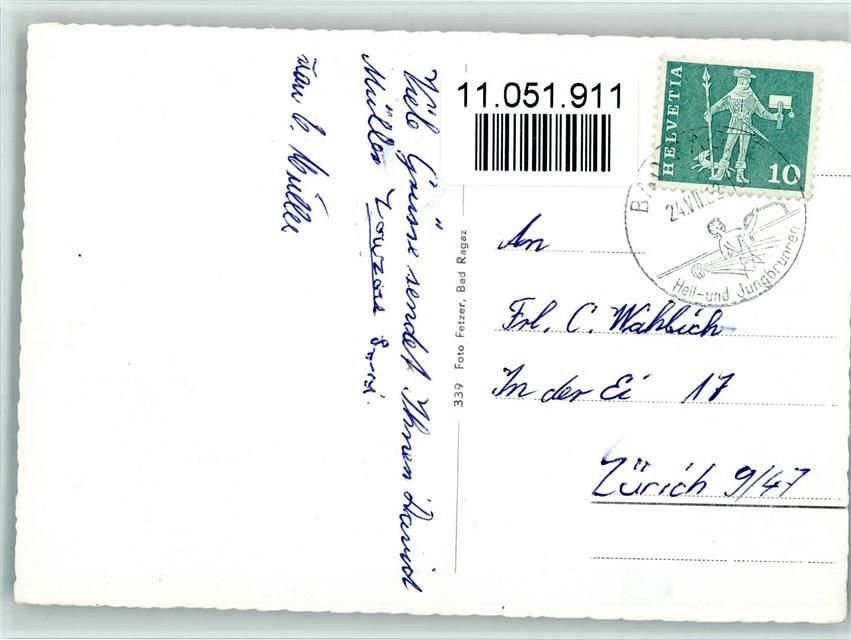 Viele Grüsse sendet Ihnen David
Müller
von E. Müller
339 Foto Fetzer, Bad Ragaz
11.051.911
HELVETIA
10
24.VII.62
Heil- und Jungbrunnen
An
Frl. C. Wahlich
In der Ei 17
Zürich 9/47